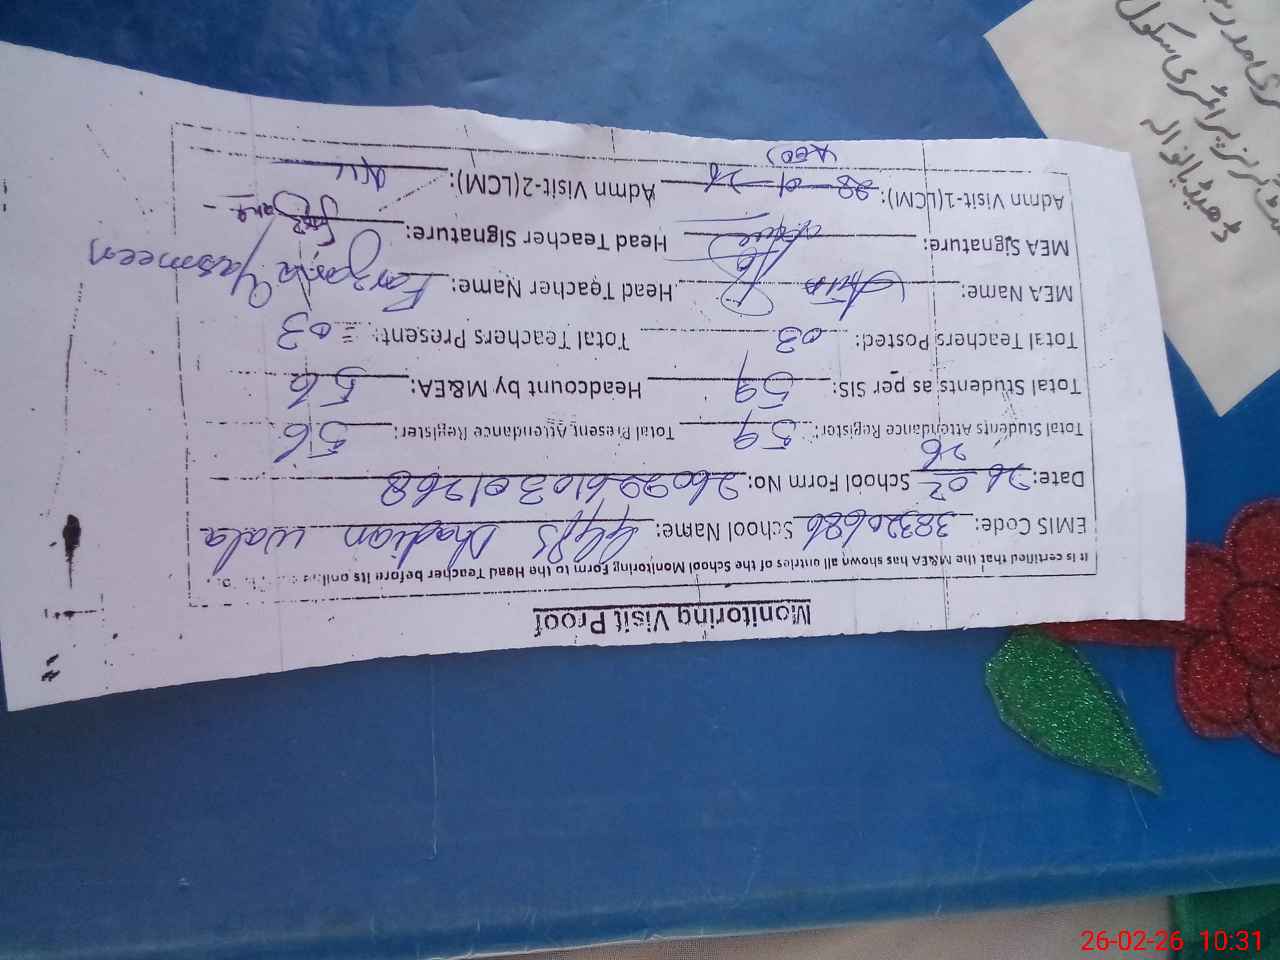 Monitoring Visit Proof
It is certified that the M&EA has shown all entries of the School Monitoring Form to the Head Teacher before its online
EMIS Code: 38320686 School Name: GGPS Dhadian wala
Date: 26 02 26 School Form No:
Total Students Attendance Register: 59 Total Present Attendance Register: 56
Total Students as per SIS: 59 Headcount by M&EA: 56
Total Teachers Posted: 03 Total Teachers Present: 03
MEA Name: Head Teacher Name: Farzana Yasmeen
MEA Signature: Head Teacher Signature:
Admn Visit-1(LCM): 28-01-26 (AEO) Admn Visit-2(LCM): Nil
پرائمری سکول
ڈھیڈیانوالہ
26-02-26 10:31